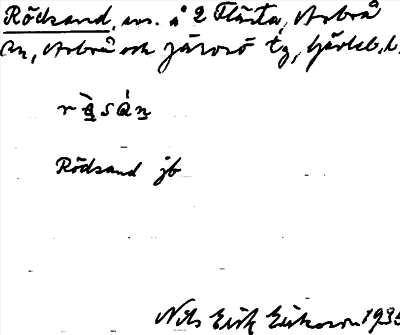 Rödsand, ers. å 2 Flästa, Arbrå
sn, Arbrå och Järvsö tg, Gävleb. l.
Rödsand jb
Nils Erik Eriksson 1935